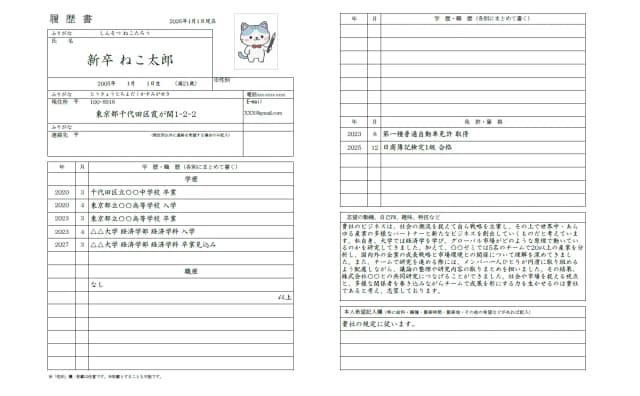 履歴書
2026年1月1日現在
ふりがな しんそつ ねこたろう
氏 名
新卒 ねこ太郎
2005年 1月 1日生 (満21歳)
※性別
ふりがな とうきょうとちよだくかすみがせき
電話xxx-xxxx-xxxx
現住所 〒 100-8916
E-mail
東京都千代田区霞が関1-2-2
XXX@gmail.com
ふりがな
電話
連絡先 〒 (現住所以外に連絡を希望する場合のみ記入)
年 月 学 歴・職 歴 (各別にまとめて書く)
学歴
2020 3 千代田区立〇〇中学校 卒業
2020 4 東京都立〇〇高等学校 入学
2023 3 東京都立〇〇高等学校 卒業
2023 4 △△大学 経済学部 経済学科 入学
2027 3 △△大学 経済学部 経済学科 卒業見込み
職歴
なし
以上
※「性別」欄:記載は任意です。未記載とすることも可能です。
年 月 学 歴・職 歴 (各別にまとめて書く)
年 月 免 許・資 格
2023 8 第一種普通自動車免許 取得
2025 12 日商簿記検定1級 合格
志望の動機、自己PR、趣味、特技など
貴社のビジネスは、社会の潮流を捉えて自ら戦略を立案し、その上で世界中・あら
ゆる産業の多様なパートナーと新たなビジネスを創出していくものだと考えていま
す。私自身、大学では経済学を学び、グローバル市場がどのような原理で動いている
のかを研究してきました。加えて、〇〇ゼミでは5名のチームで20以上の産業を分
析し、国内外の企業の成長戦略と市場環境との関係について理解を深めてきまし
た。また、チームで研究を進める際には、メンバー一人ひとりが円滑に取り組める
よう配慮しながら、議論の整理や研究内容の取りまとめを担いました。その結果、
株式会社〇〇との共同研究につなげることができました。社会や市場を捉える視点
と、多様な関係者を巻き込みながらチームで成果を形にする力を生かせるのは貴社
であると考え、志望しております。
本人希望記入欄 (特に給料・職種・勤務時間・勤務地・その他の希望などがあれば記入)
貴社の規定に従います。